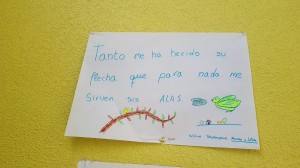 Tanto me ha herido su
flecha que para nada me
sirven sus ALAS.